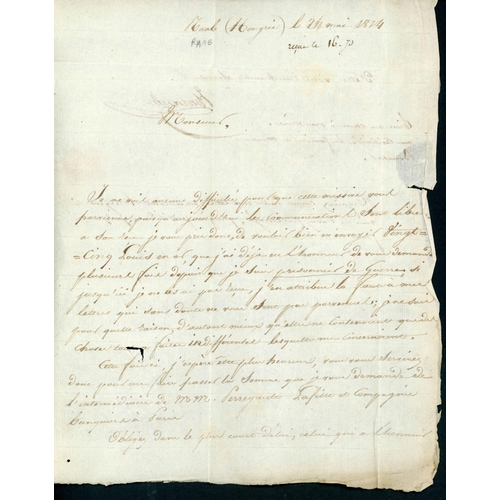 Raab (Hongrie) le 24 mai 1814
RARE
reçue le 16
Monsieur,
Je ne vois aucune difficulté pour que cette missive vous
parvienne, puisqu'aujourd'hui les communications sont libres
a son tour je vous prie donc, de vouloir bien m'envoyer Vingt=
=Cinq Louis en or, que j'ai déjà eu l'honneur de vous demander
plusieurs fois depuis que je suis prisonnier de Guerre, si
jusqu'ici je ne les ai pas reçu, j'en attribue la faute a mes
lettres qui sans doute ne vous sont pas parvenues; je ne sais
pour quelle raison, d'autant mieux qu'elles ne contenaient que des
choses tout à fait indifferentes lesquelles me concernaient.
Cette fois-ci, j'espère être plus heureux, vous vous servirez
donc pour me faire passer la somme que je vous demande de
l'intermédiaire de MM. Perregaux Lafitte et Compagnie
banquiers à Paris
Obligez dans le plus court délai, celui qui a l'honneur